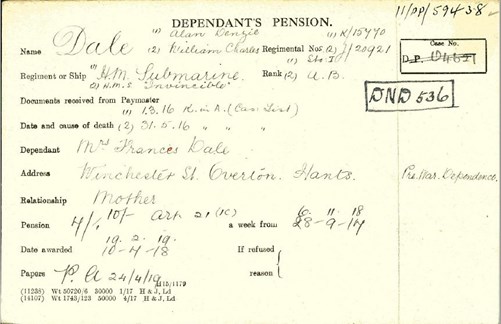 11/DP/59438
DEPENDANT'S PENSION.
(1) Alan Denzil (1) K/15770
Name Dale (2) William Charles Regimental Nos. (2) J/20921
Case No.
D.P.
(1) Sto. I
Regiment or Ship (1) H.M. Submarine. Rank (2) A.B.
(2) H.M.S "Invincible"
DND 536
Documents received from Paymaster
(1) 1.3.16 K. in A. (Cas. List)
Date and cause of death (2) 31.5.16 " " "
Dependant Mrs Frances Dale
Address Winchester St. Overton. Hants. Pre War. Dependence.
Relationship Mother
Pension 4/- 10/- Art 21 (1C) a week from 6.11.18 28-9-14
19.2.19.
Date awarded 10-4-18 If refused
Papers P.A 24/4/19 reason
(11238) Wt 50720/6 30000 1/17 H & J, Ld
(14107) Wt 1743/123 50000 4/17 H & J, Ld